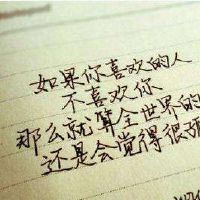 如果你喜欢的人
不喜欢你
那么就算全世界的
还是会觉得很